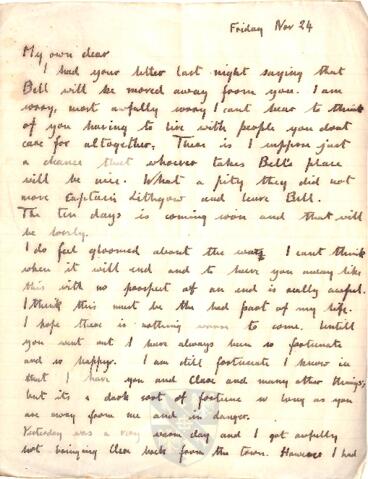 Friday Nov 24
My own dear
I had your letter last night saying that
Bell will be moved away from you. I am
sorry, most awfully sorry I cant bear to think
of you having to live with people you dont
care for altogether. There is I suppose just
a chance that whoever takes Bell's place
will be nice. What a pity they did not
move Captain Lithgow and leave Bell.
The ten days is coming soon and that will
be lovely.
I do feel gloomed about the war. I cant think
when it will end and to have you away like
this with no prospect of an end is really awful.
I think this must be the bad part of my life.
I hope there is nothing worse to come. Untill
you went out I have always been so fortunate
and so happy. I am still fortunate I know in
that I have you and Clare and many other things,
but its a dark sort of fortune so long as you
are away from me and in danger.
Yesterday was a very warm day and I got awfully
hot bringing Clare back from the town. However I had